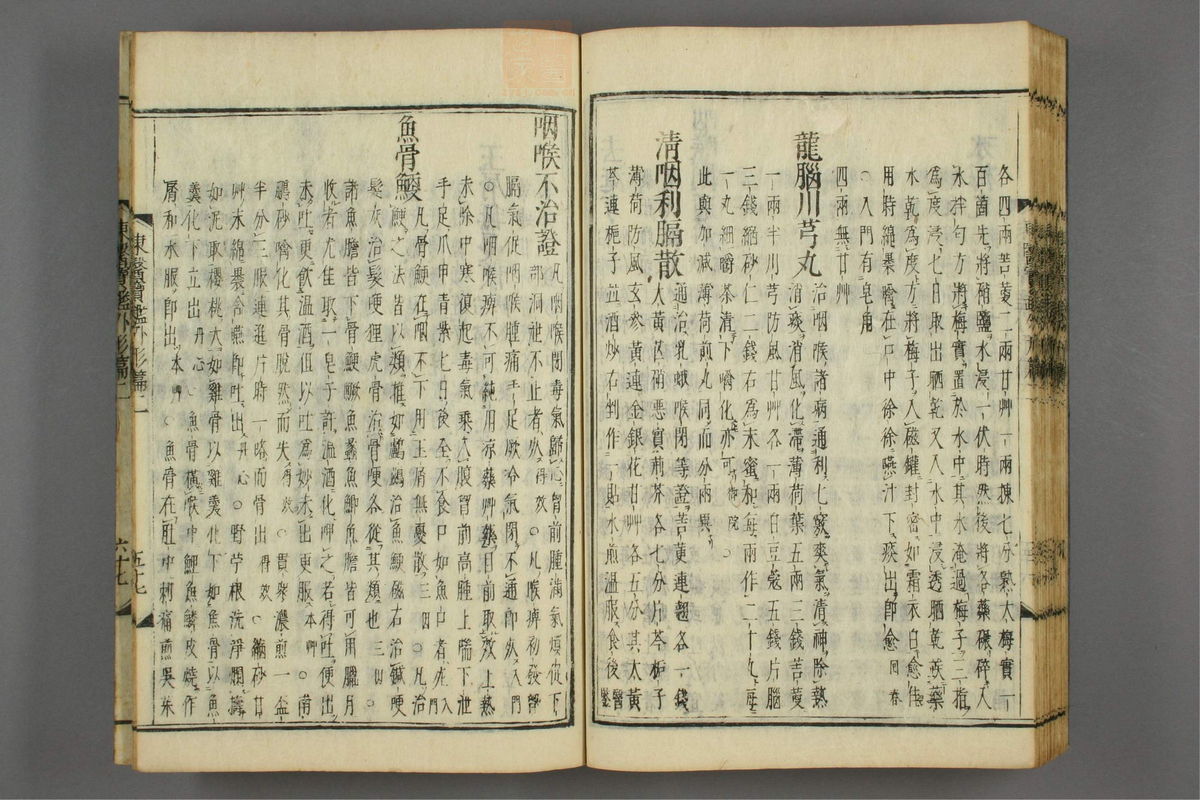 各四兩苦蔆二兩甘艸一兩揀七分熟大梅實一
百箇先將硝鹽水浸一伏時然後將各藥碾碎入
水拌勻方將梅實置於水中其水淹過梅子三指
爲度浸七日取出晒乾又入水中浸透晒乾候藥
水乾爲度方將梅子入磁罐封密如霜衣白愈佳
用時綿裹噙在口中徐徐嚥汁下痰出卽愈 回春
○入門有皂角
四兩無甘艸
龍腦川芎丸 治咽喉諸病通利七竅爽氣淸神除熱
消痰消風化滯薄荷葉五兩三錢苦蔆
一兩半川芎防風甘艸各一兩白豆蔲五錢片腦
三錢縮砂仁二錢右爲末蜜和每兩作二十丸每
一丸細嚼茶淸下嚼化亦可 御院
此與加減薄荷煎丸同而分兩異○
淸咽利膈散 通治乳蛾喉閉等證苦黃連翹各一錢
大黃芒硝惡實荊芥各七分片芩梔子
薄荷防風玄參黃連金銀花甘艸各五分其大黃
芩連梔子並酒炒右剉作一貼水煎溫服食後 醫鑑
咽喉不治證 凡咽喉閉毒氣歸心胷前腫滿氣煩促下
部洞泄不止者死 得效 ○凡喉痹初發暫
膈氣促咽喉腫痛手足厥冷氣閉不通卽死 入門
○凡咽喉痹不可純用凉藥艸藥目前取效上熱
未除中寒復起毒氣乘入腹胷前高腫上喘下泄
手足爪甲靑紫七日後全不食口如魚口者死 入門
魚骨鯁 凡骨鯁在咽不下用玉屑無憂散 三因 ○凡治
鯁之法皆以類推如鸕鶿治魚鯁磁石治鍼哽
髮灰治髮哽狸虎骨治骨哽各從其類也 三因 ○
諸魚膽皆下骨鯁鱖魚蠡魚鯽魚膽皆可用臘月
收者尤佳取一皂子許溫酒化呷之若得吐便出
未吐更飮溫酒但以吐爲妙未出更服 本艸 ○南
鵬砂噙化其骨脫然而失 得效 ○貫衆濃煎一盞
半分三服連進片時一咯而骨出 得效 ○縮砂甘
艸末綿裹含嚥卽吐出 丹心 ○野苧根洗淨爛擣
如泥取櫻桃大如雞骨以雞羹化下如魚骨以魚
羹化下立出 丹心 ○魚骨橫喉中鯽魚鱗皮燒作
屑和水服卽出 本艸 ○魚骨在肚中刺痛煎吳茱
東醫寶鑑外形篇二
六十七
五七